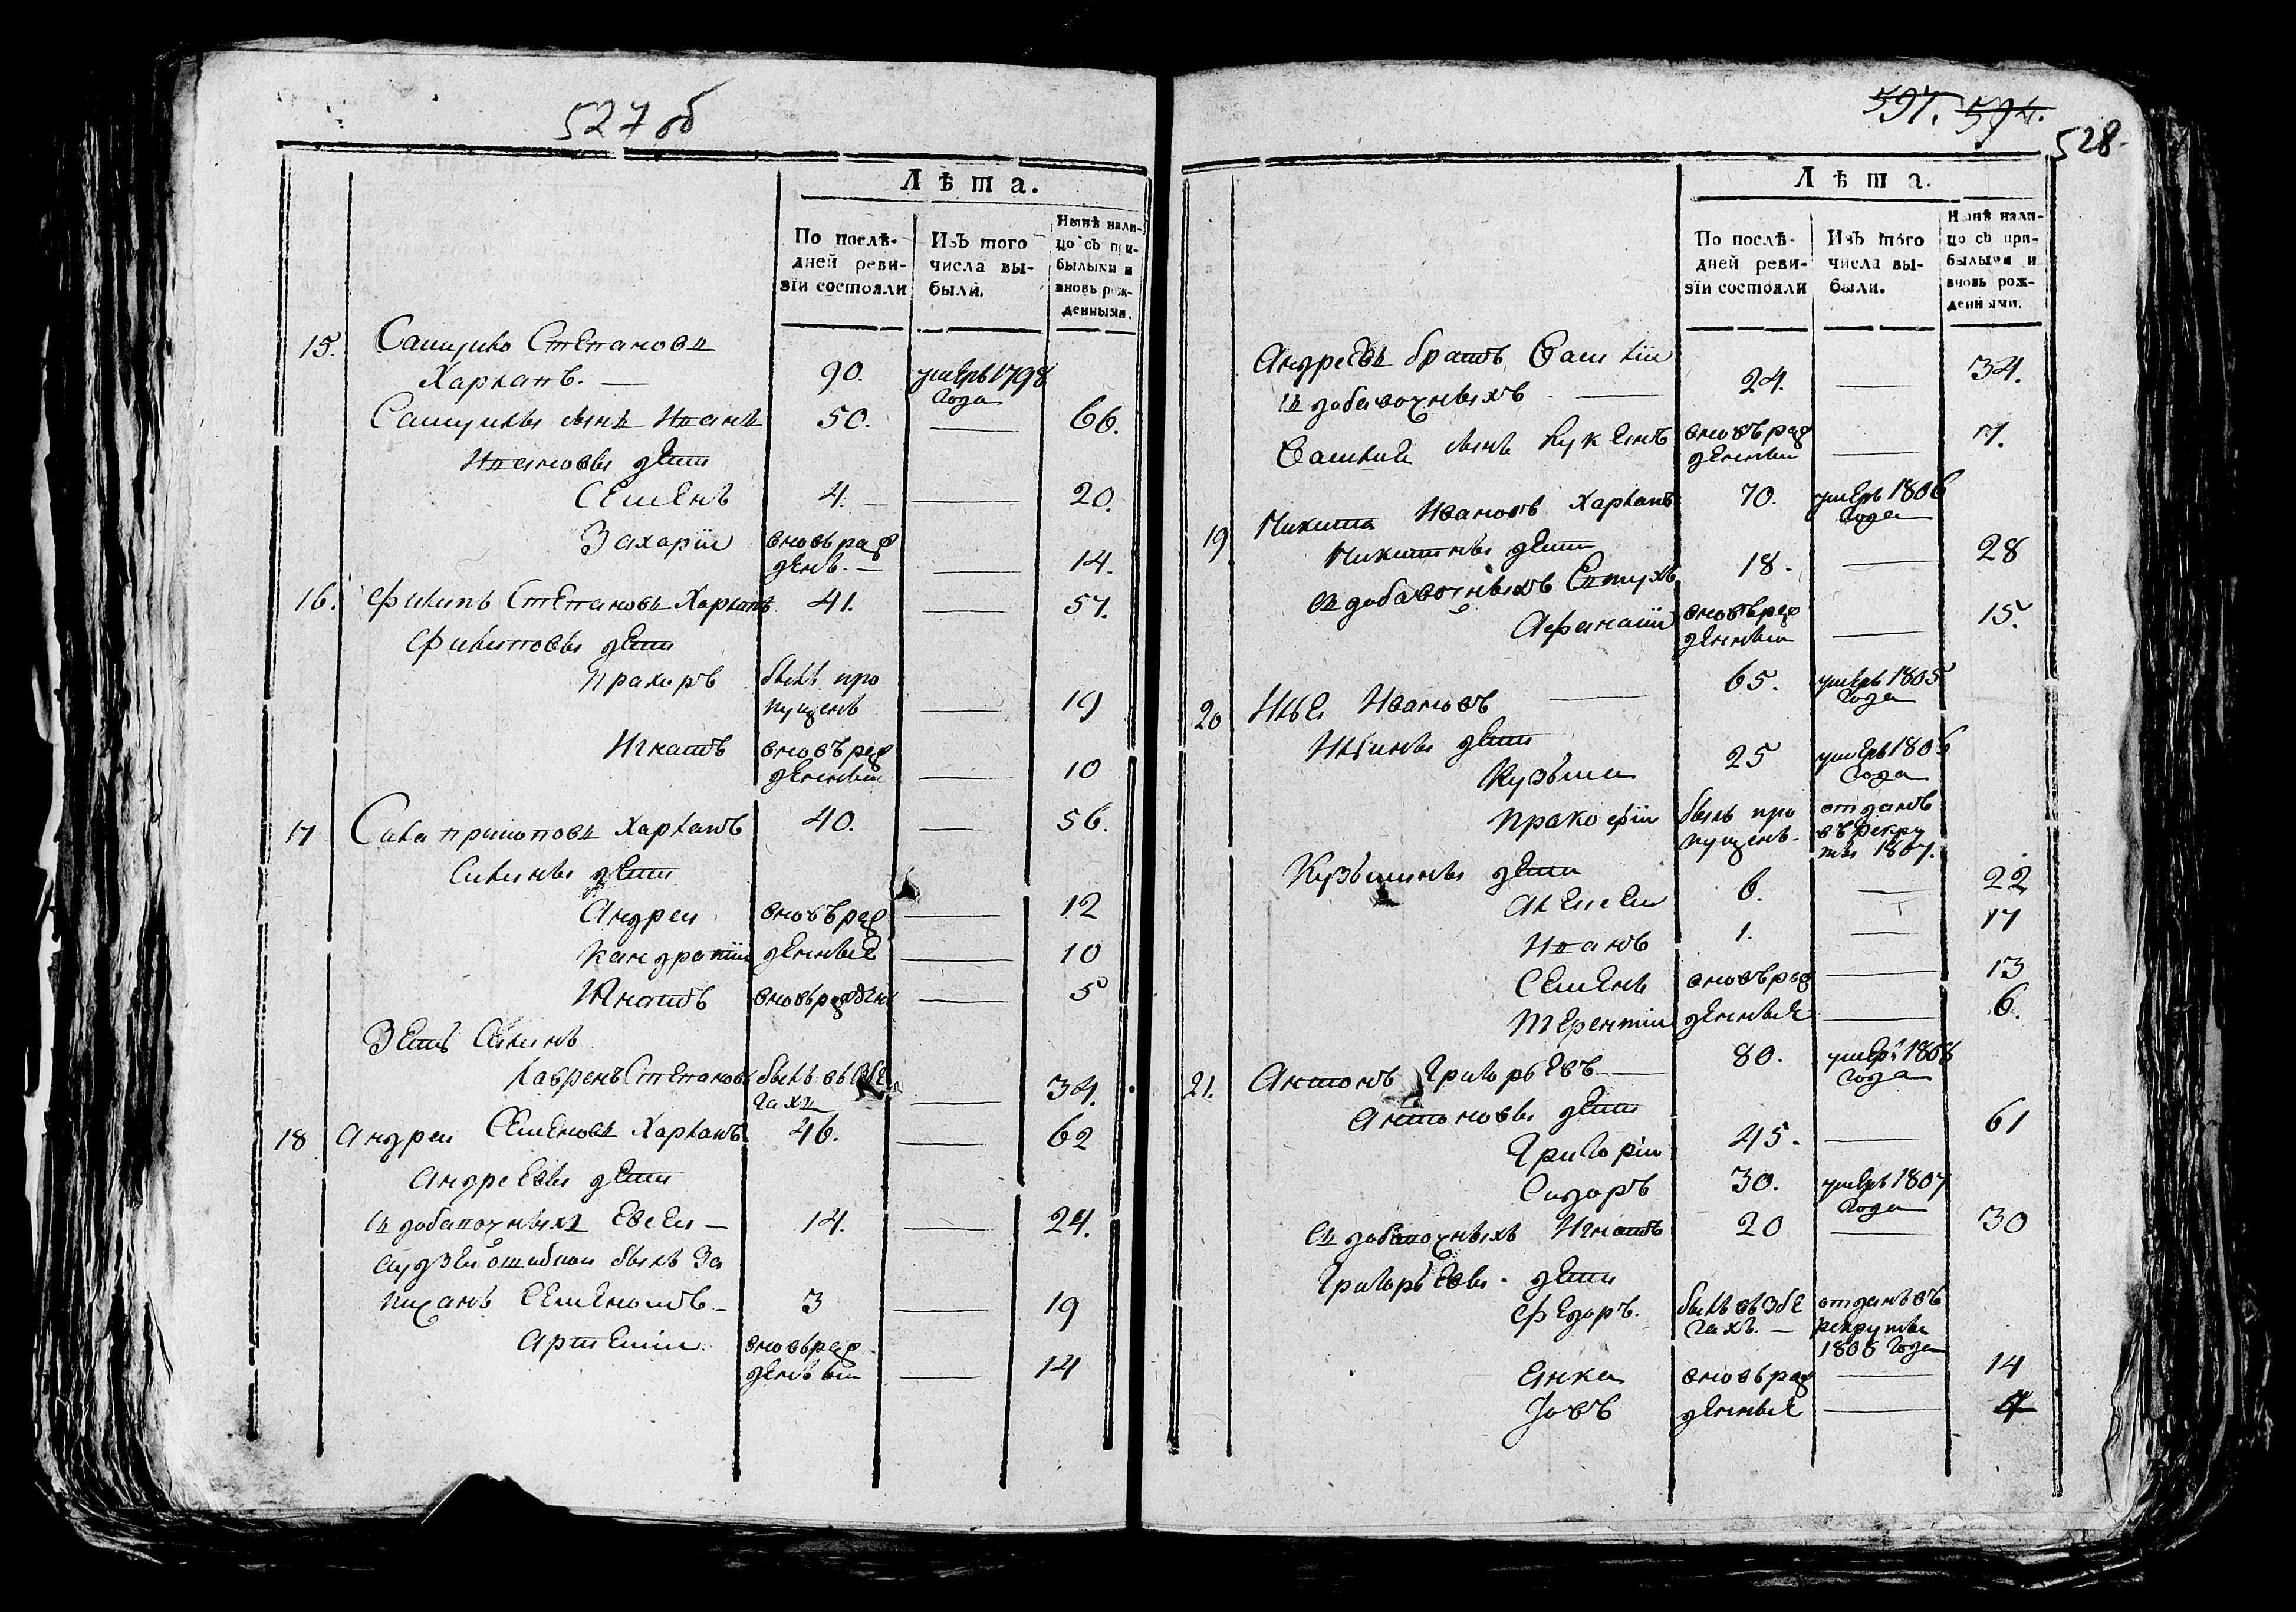 527 об
Лѣта.
По послѣ-
дней реви-
зіи состояли
Изъ того
числа вы-
были.
Нынѣ нали-
цо съ при-
былыми и
вновь рож-
денными.
15. Самуило Степановъ
Харланъ. — 90. умеръ 1798
года
Самуилы сынъ Иванъ 50. — 66.
Ивановы дети
Семенъ 4. — — 20.
Захарiи вновь раж
денъ. — — 14.
16. Филипъ Степановъ Харланъ 41. — 57.
Филиповы дети
Прахоръ былъ про
пущенъ — 19
Игнатъ вновъ раж
денныи — 10
17 Сила Харланъ 40. — 56.
Силины дети
Андреи вновъ раж — 12
Кандратiи денные — 10
Игнатъ вновь рожденъ — 5
Зеть Силинъ
Лавренъ Степановъ былъ въ бе
гахъ — 34.
18 Андреи Семеновъ Харланъ 46. — 62
Андреевы дети
съ добавочныхъ Евсеи — 14. — 24.
ошибкои былъ за
писанъ Семеномъ — 3 — 19
Артемiи вновь раж
денъныи — 14
597. 594.
528.
Лѣта.
По послѣ-
дней реви-
зіи состояли
Изъ того
числа вы-
были.
Нынѣ нали-
цо съ при-
былыми и
вновь рож-
денными.
Андреевъ братъ Василiи
съ добавочныхъ — 24. — 34.
Василия сынъ Лукянъ вновъ раж
денныи — 7.
19 Никита Ивановъ Харланъ 70. умеръ 1806
года
Никитины дети
съ добавочныхъ 18. — 28
Афанасiи вновъ раж
денныи — 15.
20 Илья Ивановъ — 65. умеръ 1805
года
Ильины дети
Кузьма 25 умеръ 1806
года
Пракофiи былъ про
пущенъ отданъ
въ рекру
ты 1807.
Кузьмины дети
Алексеи 6. — 22
Иванъ 1. — 17
Семенъ вновъ раж — 13
Терентiи денные — 6.
21. Антонъ Григорьевъ — 80. умеръ 1808
года
Антоновы дети
Григорiи 45. — 61
Сидоръ 30. умеръ 1807
года
съ добавочныхъ Игнатъ 20 — 30
Григорьевы дети
Федоръ. былъ въ збе
гахъ. — отданъ въ
рекруты
1808 года
Янка вновь раж — 14
Iовъ денные — 7